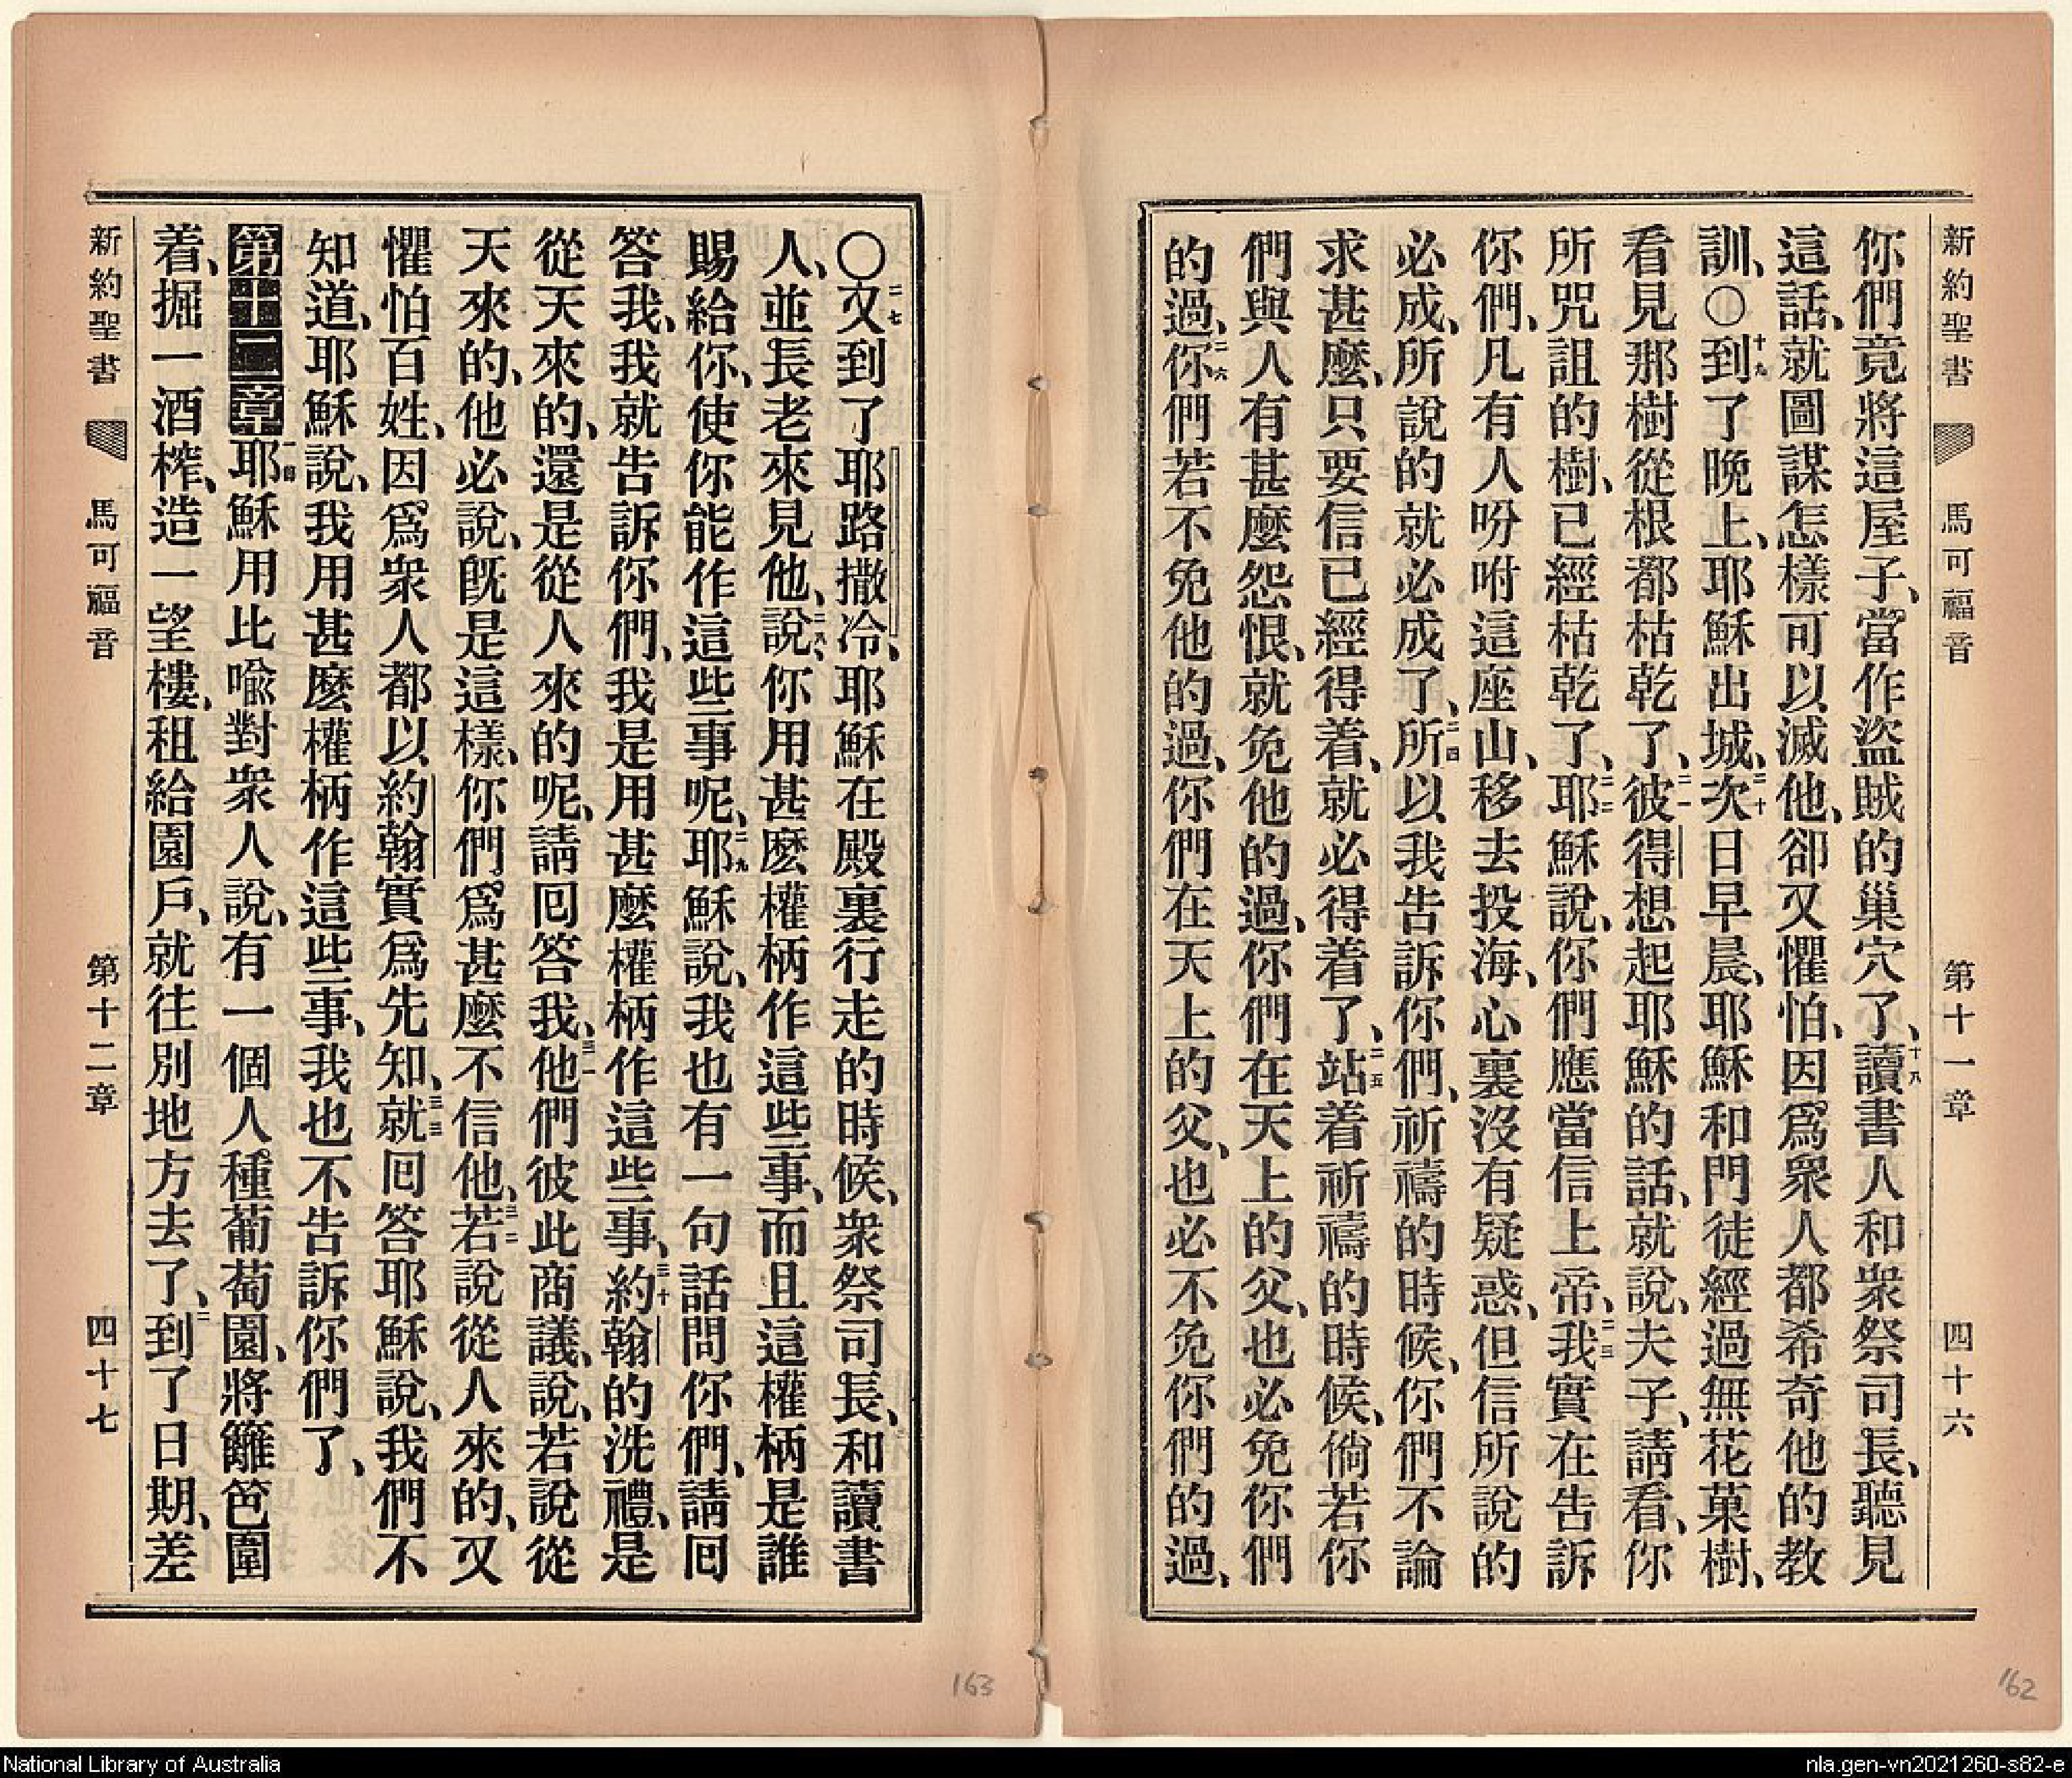 新約聖書 馬可福音 第十一章 四十六
你們竟將這屋子、當作盜賊的巢穴了、十八讀書人和衆祭司長、聽見
這話、就圖謀怎樣可以滅他、卻又懼怕、因爲衆人都希奇他的教
訓、○十九到了晚上、耶穌出城、二十次日早晨、耶穌和門徒經過無花菓樹、
看見那樹從根都枯乾了、二一彼得想起耶穌的話、就說、夫子、請看、你
所咒詛的樹、已經枯乾了、二二耶穌說、你們應當信上帝、二三我實在告訴
你們、凡有人吩咐這座山、移去投海、心裏沒有疑惑、但信所說的
必成、所說的就必成了、二四所以我告訴你們、祈禱的時候、你們不論
求甚麼、只要信已經得着、就必得着了、二五站着祈禱的時候、倘若你
們與人有甚麼怨恨、就免他的過、你們在天上的父、也必免你們
的過、二六你們若不免他的過、你們在天上的父、也必不免你們的過、
○二七又到了耶路撒冷、耶穌在殿裏行走的時候、衆祭司長、和讀書
人、並長老來見他、二八說、你用甚麼權柄作這些事、而且這權柄是誰
賜給你、使你能作這些事呢、二九耶穌說、我也有一句話問你們、請囘
答我、我就告訴你們、我是用甚麼權柄作這些事、三十約翰的洗禮、是
從天來的、還是從人來的呢、請囘答我、三一他們彼此商議、說、若說從
天來的、他必說、旣是這樣、你們爲甚麼不信他、三二若說從人來的、又
懼怕百姓、因爲衆人都以約翰實爲先知、三三就囘答耶穌說、我們不
知道、耶穌說、我用甚麼權柄作這些事、我也不告訴你們了、
第十二章一節耶穌用比喩對衆人說、有一個人種葡萄園、將籬笆圍
着、掘一酒榨、造一望樓、租給園戶、就往別地方去了、二到了日期、差
新約聖書 馬可福音 第十二章 四十七
163
162
National Library of Australia
nla.gen-vn2021260-s82-e